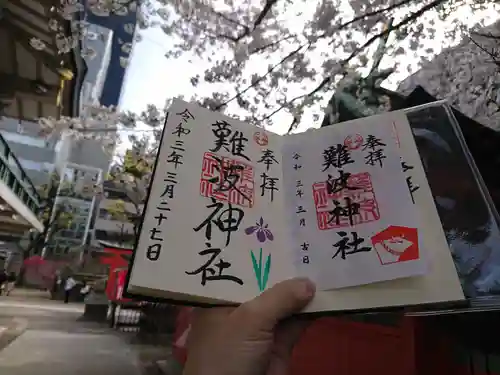 奉拝
難波神社
令和三年三月二十七日
奉拝
難波神社
令和三年三月吉日